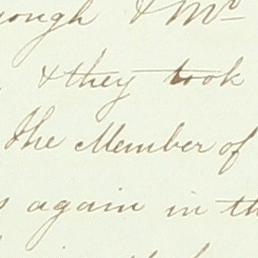 & Mr
& they took
the Member of
again in